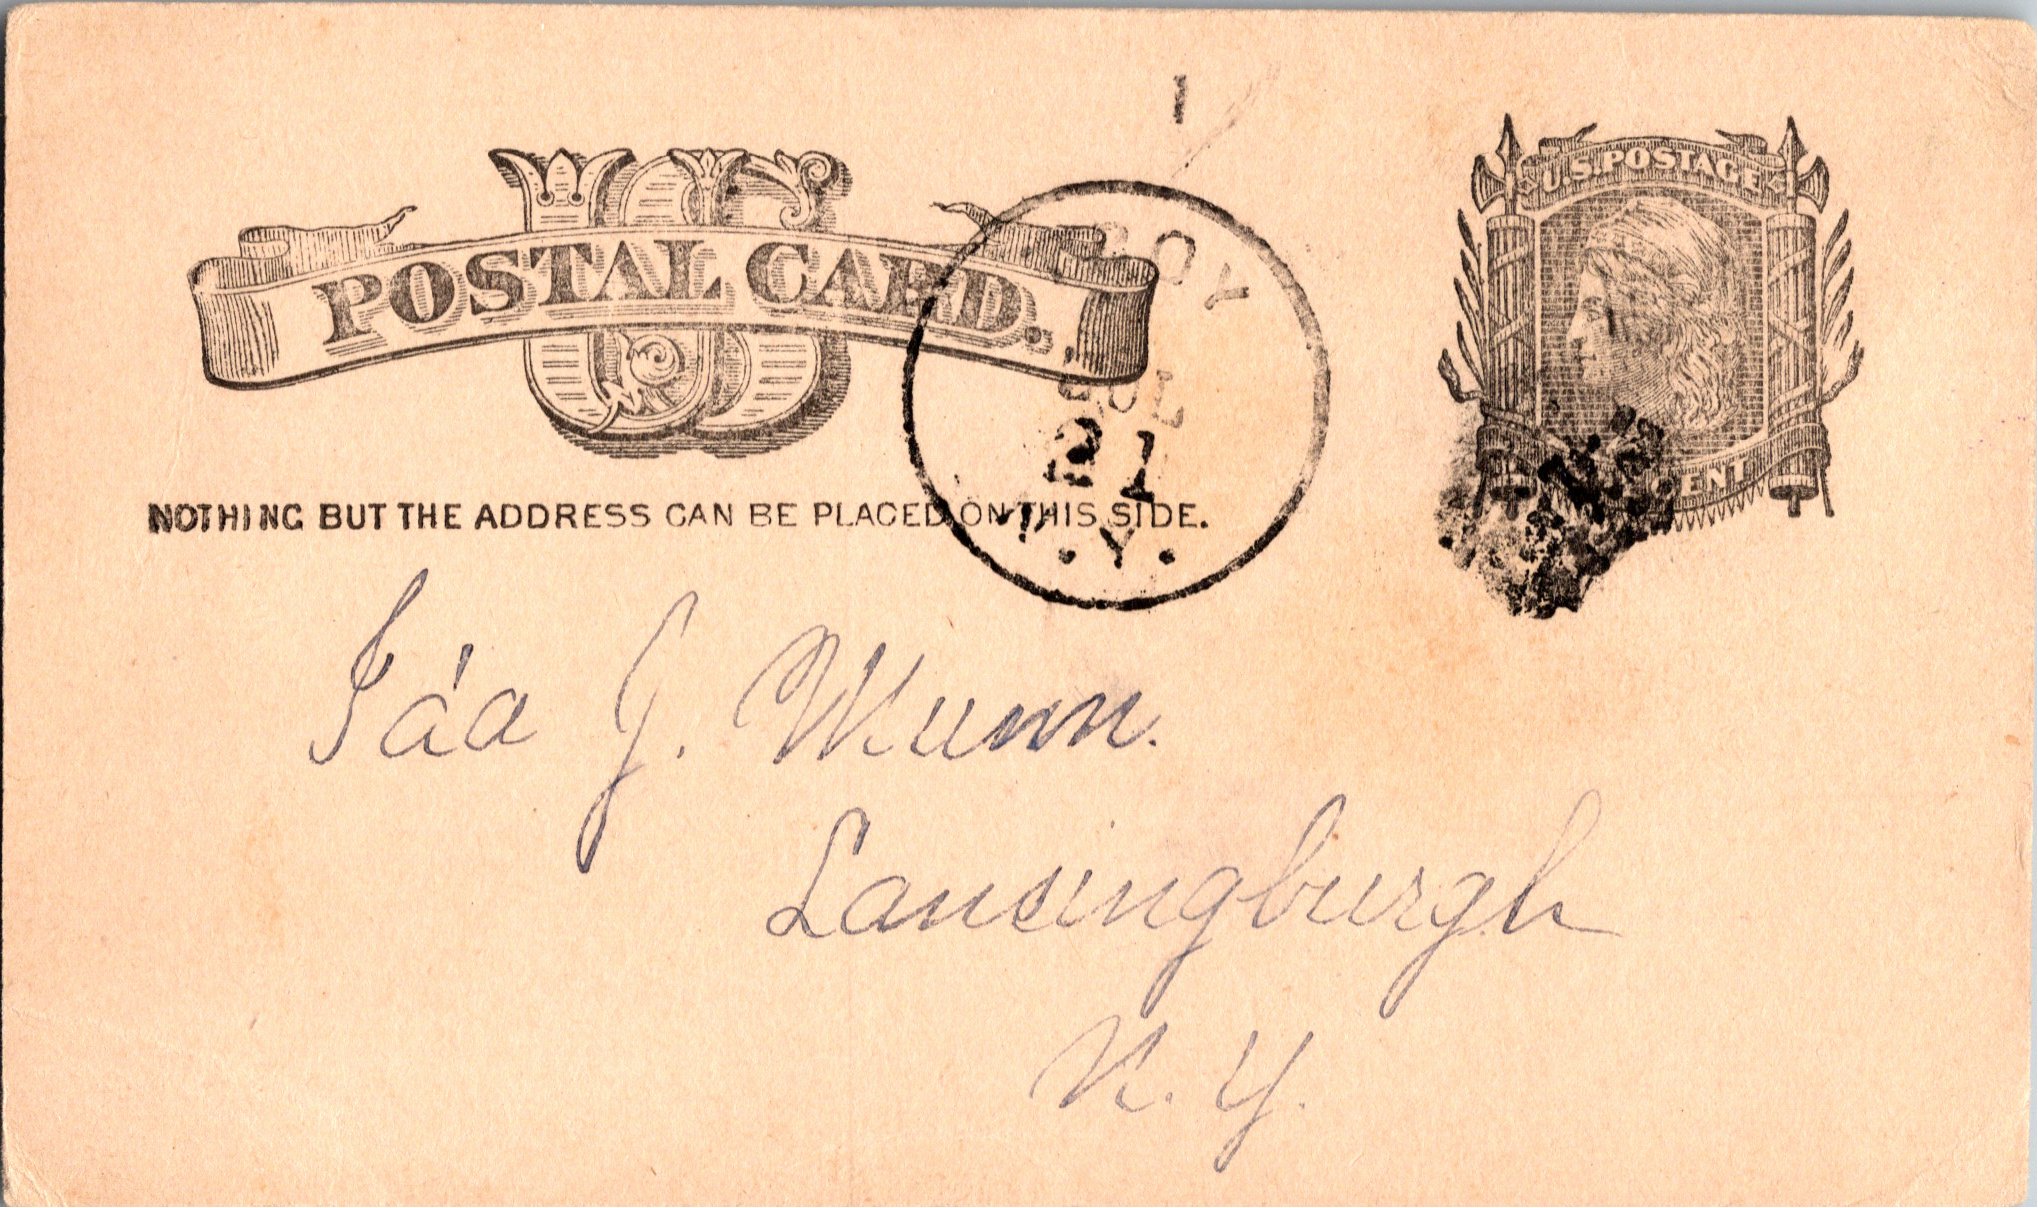 US
POSTAL CARD.
U.S. POSTAGE
ENT
ROY
JUL
21
N.Y.
NOTHING BUT THE ADDRESS CAN BE PLACED ON THIS SIDE.
Ida J. Munn.
Lansingburgh
N. Y.